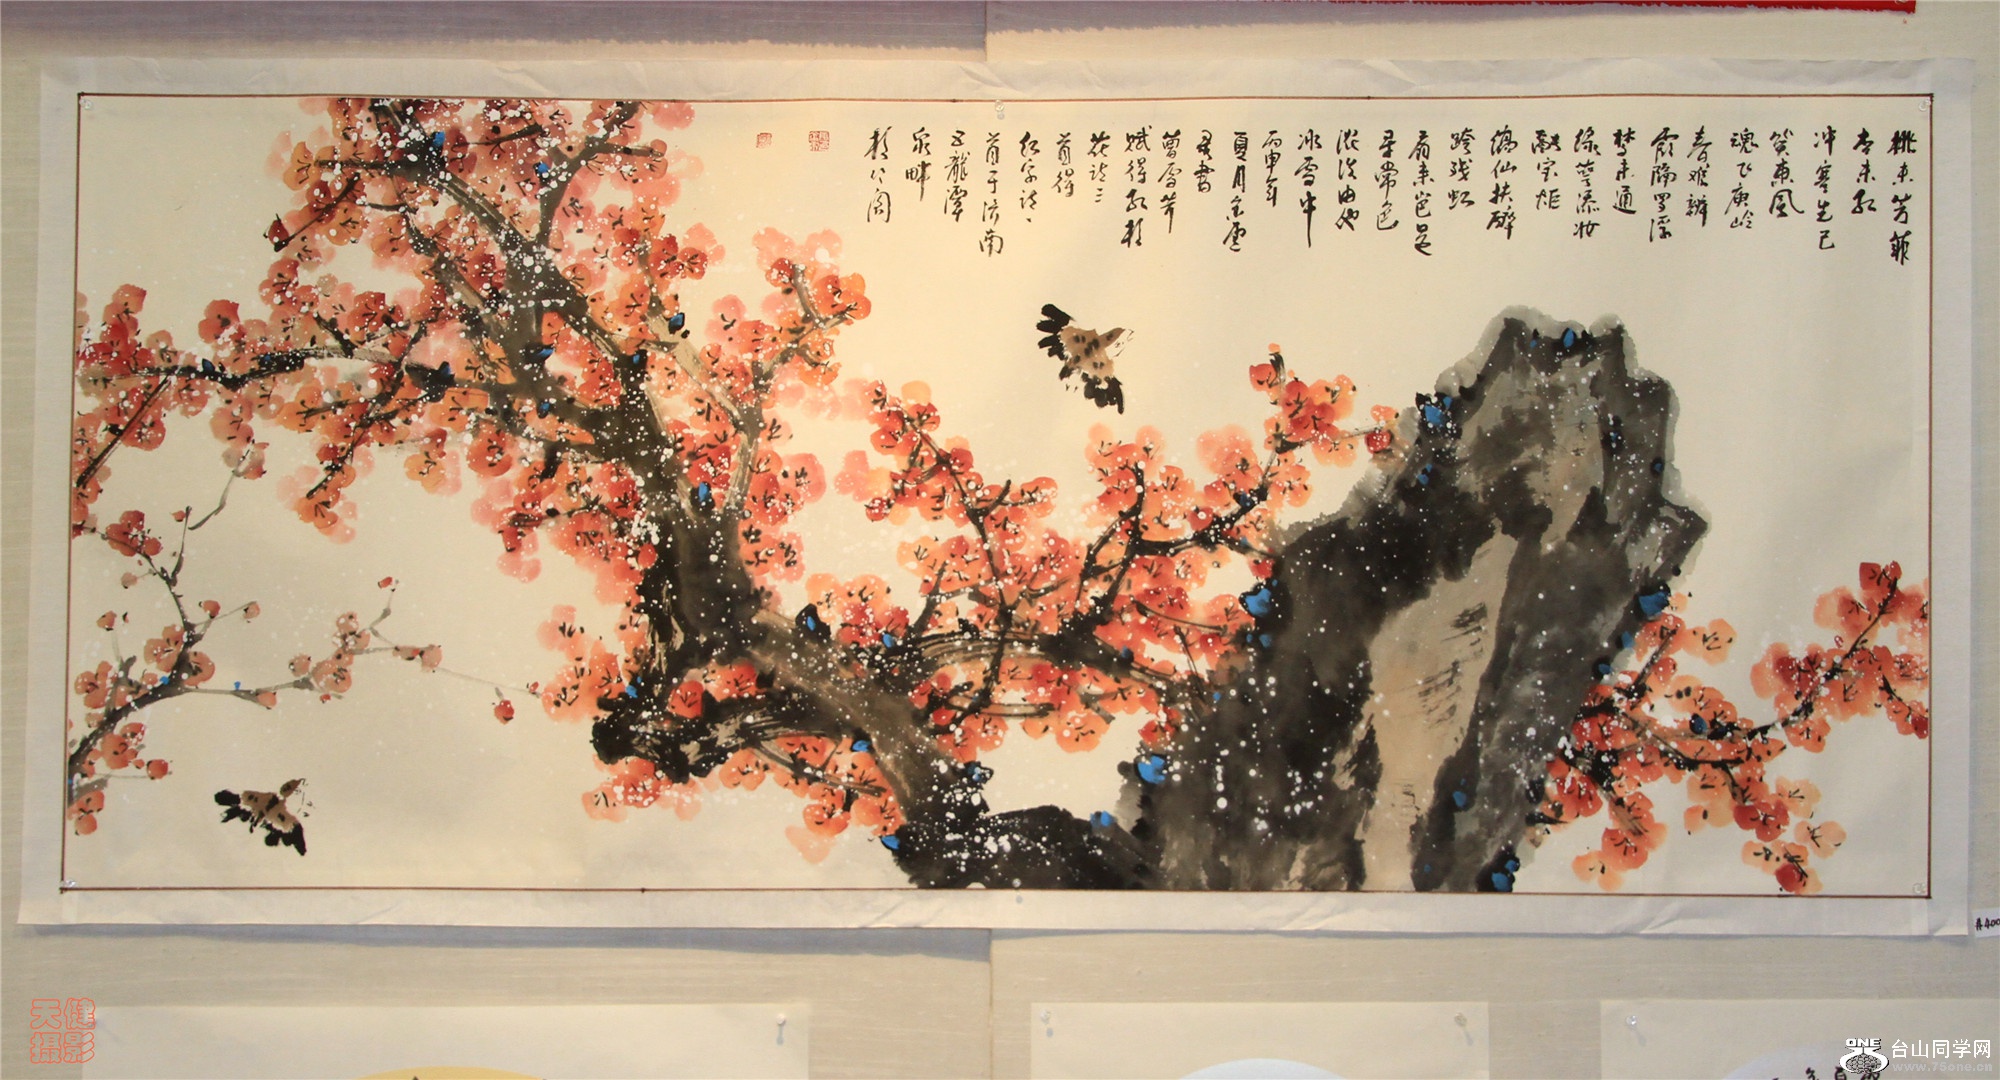 桃未芳菲
杏未红
冲寒先已
笑東风
魂飞庾岭
春难辨
霞隔罗浮
梦未通
绿萼添妆
融宝炬
缟仙扶醉
跨残虹
看来岂是
寻常色
浓淡由他
冰雪中
丙申年
夏月
君书
曹雪芹
赋得红梅
花诗三
首得
红字诗一
首于济南
五龍潭
泉畔
天健
摄影
ONE
台山同学网
www.75one.cn